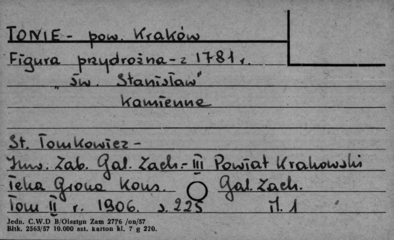 TONIE - pow. Kraków
Figura przydrożna - z 1781 r.
„św. Stanisław"
kamienne
St. Tomkowicz -
Inw. Zab. Gal. Zach. - III Powiat Krakowski
Teka Grona Kons. Gal. Zach.
Tom II r. 1906. s. 225 il. 1
Jedn. C.W.D B/Olsztyn Zam 2776 /on/57
Bltk. 2563/57 10.000 szt. karton kl. 7 g 220.